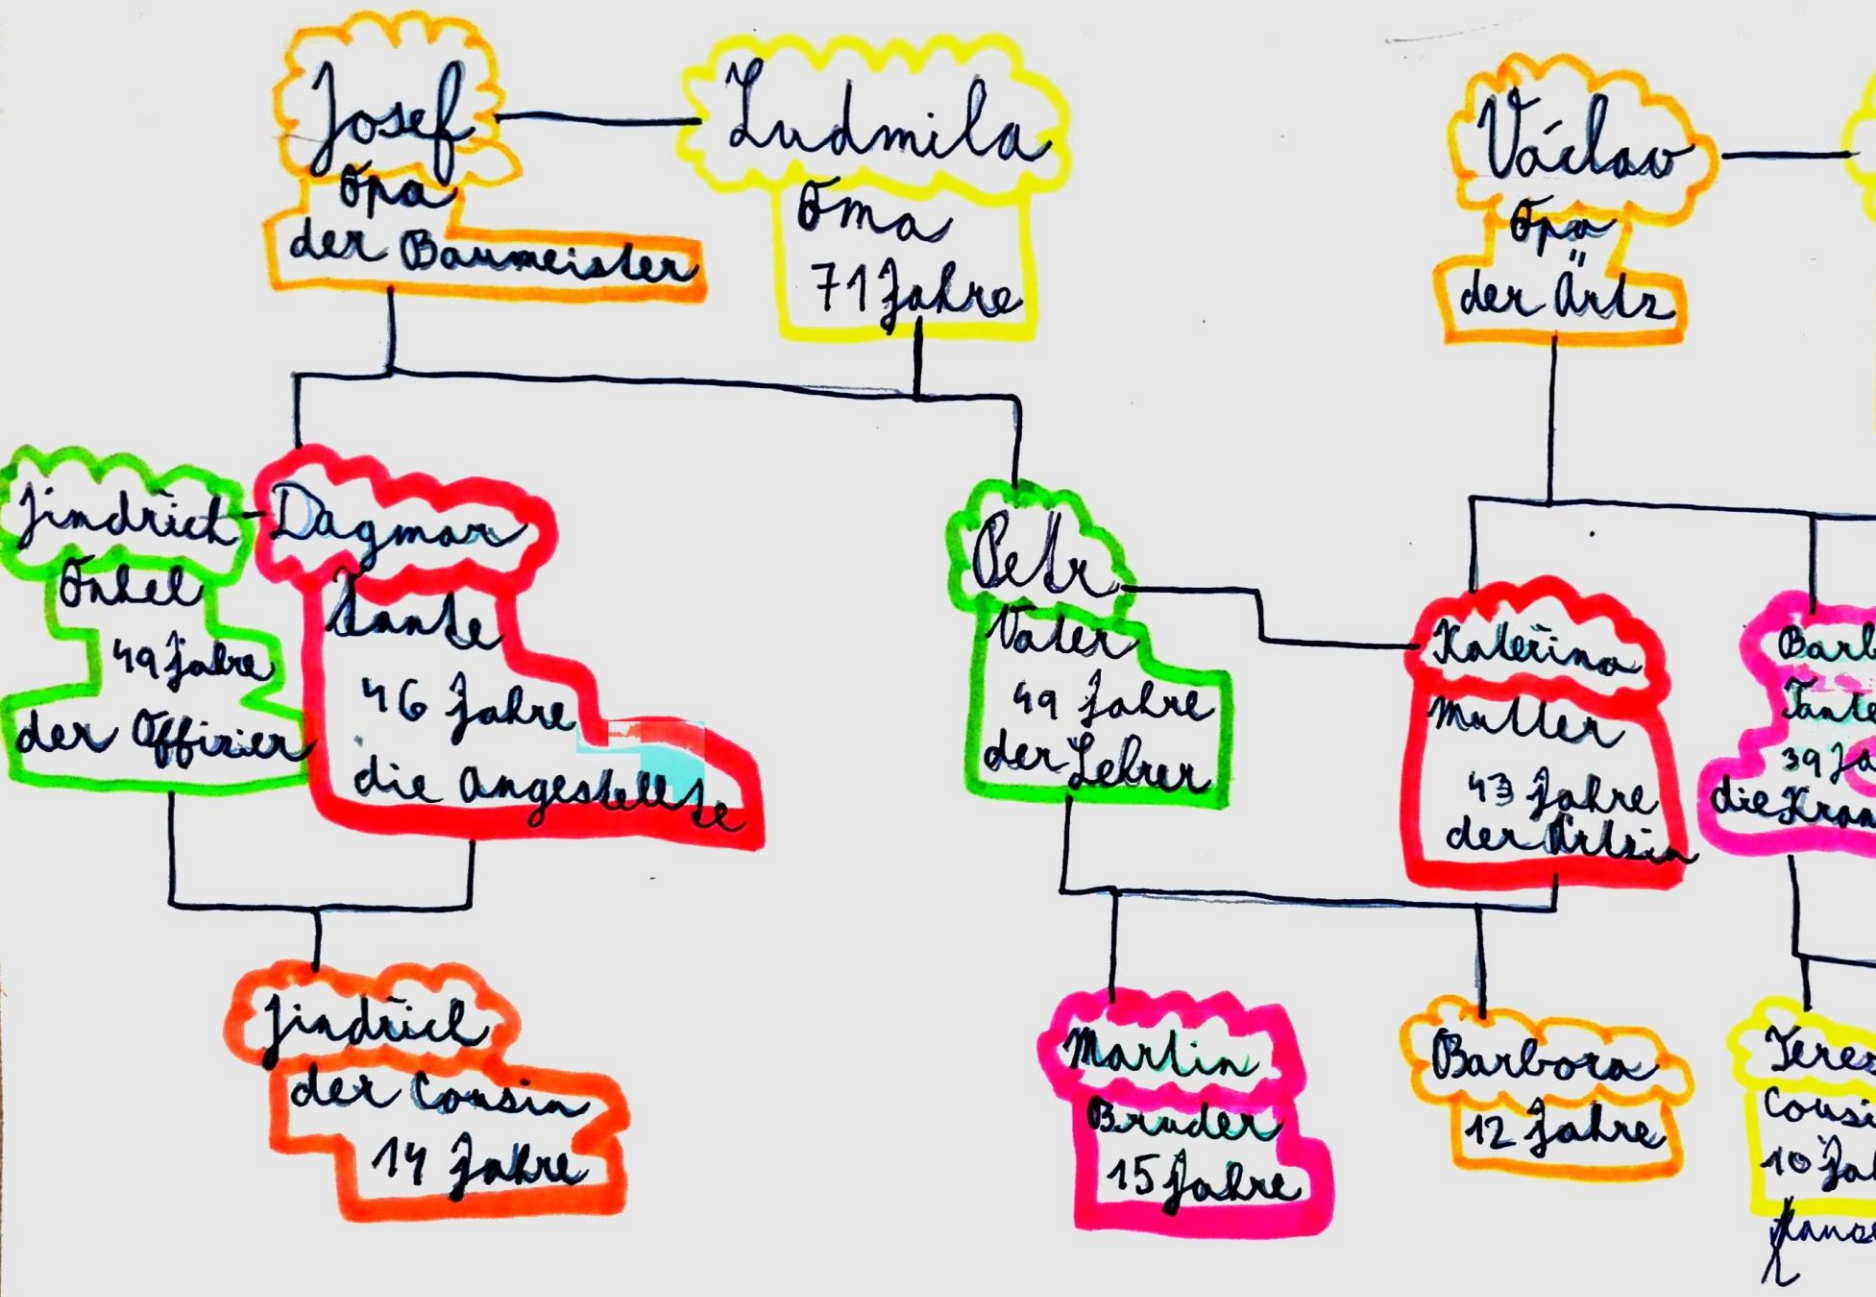 Josef
Opa
der Baumeister
Ludmila
Oma
71 Jahre
Václav
Opa
der Ärtz
Jindřich
Onkel
49 Jahre
der Offizier
Dagmar
Tante
46 Jahre
die Angestellte
Petr
Vater
49 Jahre
der Lehrer
Kateřina
Mutter
43 Jahre
der Ärtzin
Barb
Tante
39 Ja
die Kran
Jindřich
der Cousin
14 Jahre
Martin
Bruder
15 Jahre
Barbora
12 Jahre
Teres
Cousi
10 Jah